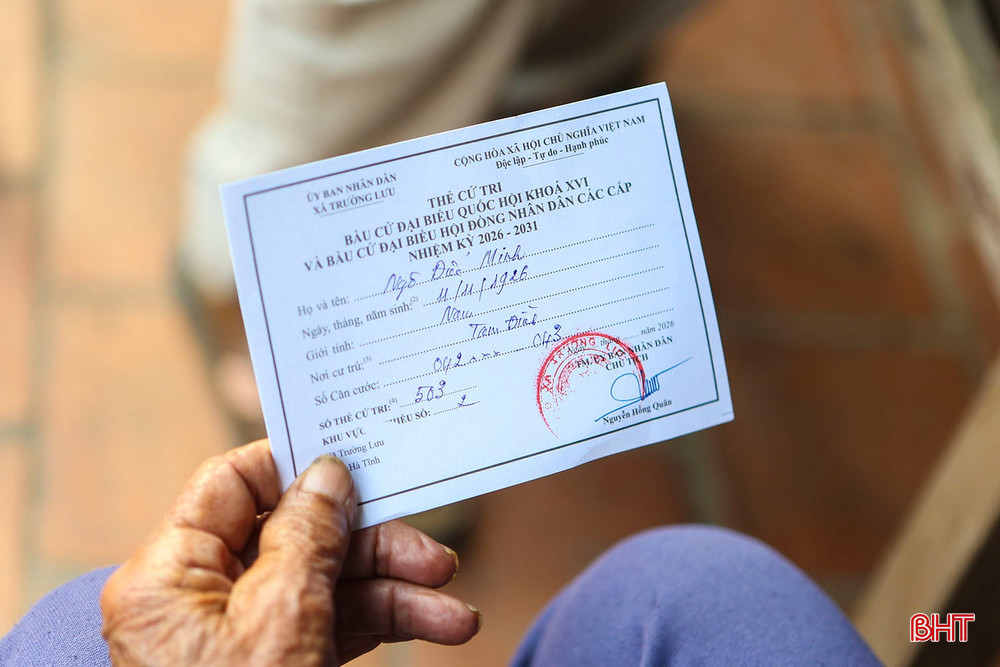 CỘNG HÒA XÃ HỘI CHỦ NGHĨA VIỆT NAM
Độc lập - Tự do - Hạnh phúc
ỦY BAN NHÂN DÂN
XÃ TRƯỜNG LƯU
THẺ CỬ TRI
BẦU CỬ ĐẠI BIỂU QUỐC HỘI KHOÁ XVI
VÀ BẦU CỬ ĐẠI BIỂU HỘI ĐỒNG NHÂN DÂN CÁC CẤP
NHIỆM KỲ 2026 - 2031
Họ và tên: Ngô Điức Minh
Ngày, tháng, năm sinh:(2) 11/11/1926
Giới tính: Nam
Nơi cư trú:(3) Tam Đình
Số Căn cước: 042 xxx 043
SỐ THẺ CỬ TRI:(4) 503
KHU VỰC PHIẾU SỐ: 2
Xã Trường Lưu
Hà Tĩnh
năm 2026
TM. ỦY BAN NHÂN DÂN
CHỦ TỊCH
XÃ TRƯỜNG LƯU
Nguyễn Hồng Quân
BHT